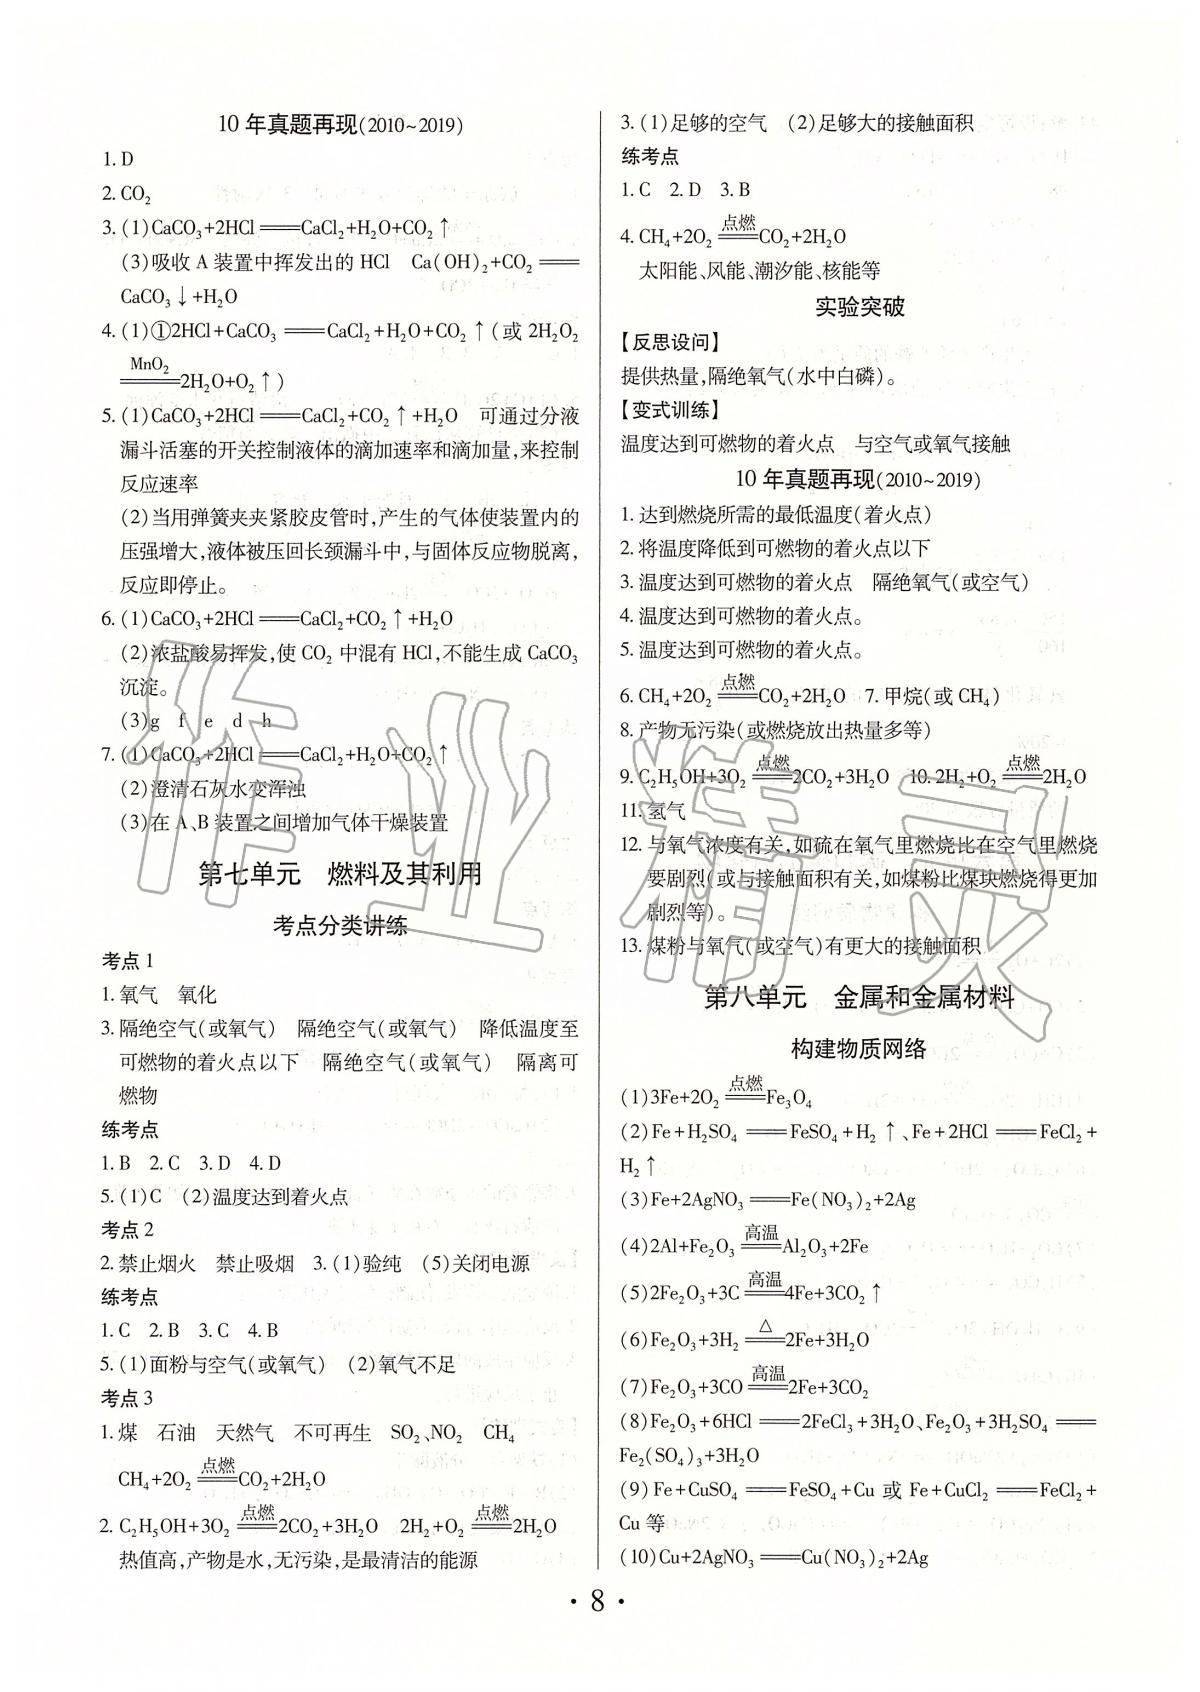 10 年真题再现(2010~2019)
1. D
2. CO₂
3. (1)CaCO₃+2HCl══CaCl₂+H₂O+CO₂↑
(3)吸收 A 装置中挥发出的 HCl　Ca(OH)₂+CO₂══
CaCO₃↓+H₂O
4. (1)①2HCl+CaCO₃══CaCl₂+H₂O+CO₂↑(或 2H₂O₂
MnO₂
══2H₂O+O₂↑)
5. (1)CaCO₃+2HCl══CaCl₂+CO₂↑+H₂O　可通过分液
漏斗活塞的开关控制液体的滴加速率和滴加量,来控制
反应速率
(2)当用弹簧夹夹紧胶皮管时,产生的气体使装置内的
压强增大,液体被压回长颈漏斗中,与固体反应物脱离,
反应即停止。
6. (1)CaCO₃+2HCl══CaCl₂+CO₂↑+H₂O
(2)浓盐酸易挥发,使 CO₂ 中混有 HCl,不能生成 CaCO₃
沉淀。
(3)g　f　e　d　h
7. (1)CaCO₃+2HCl══CaCl₂+H₂O+CO₂↑
(2)澄清石灰水变浑浊
(3)在 A、B 装置之间增加气体干燥装置
第七单元　燃料及其利用
考点分类讲练
考点 1
1. 氧气　氧化
3. 隔绝空气(或氧气)　隔绝空气(或氧气)　降低温度至
可燃物的着火点以下　隔绝空气(或氧气)　隔离可
燃物
练考点
1. B　2. C　3. D　4. D
5. (1)C　(2)温度达到着火点
考点 2
2. 禁止烟火　禁止吸烟　3. (1)验纯　(5)关闭电源
练考点
1. C　2. B　3. C　4. B
5. (1)面粉与空气(或氧气)　(2)氧气不足
考点 3
1. 煤　石油　天然气　不可再生　SO₂、NO₂　CH₄
点燃
CH₄+2O₂══CO₂+2H₂O
点燃　点燃
2. C₂H₅OH+3O₂══2CO₂+3H₂O　2H₂+O₂══2H₂O
热值高,产物是水,无污染,是最清洁的能源
3. (1)足够的空气　(2)足够大的接触面积
练考点
1. C　2. D　3. B
点燃
4. CH₄+2O₂══CO₂+2H₂O
太阳能、风能、潮汐能、核能等
实验突破
【反思设问】
提供热量,隔绝氧气(水中白磷)。
【变式训练】
温度达到可燃物的着火点　与空气或氧气接触
10 年真题再现(2010~2019)
1. 达到燃烧所需的最低温度(着火点)
2. 将温度降低到可燃物的着火点以下
3. 温度达到可燃物的着火点　隔绝氧气(或空气)
4. 温度达到可燃物的着火点。
5. 温度达到可燃物的着火点。
点燃
6. CH₄+2O₂══CO₂+2H₂O　7. 甲烷(或 CH₄)
8. 产物无污染(或燃烧放出热量多等)
点燃　点燃
9. C₂H₅OH+3O₂══2CO₂+3H₂O　10. 2H₂+O₂══2H₂O
11. 氢气
12. 与氧气浓度有关,如硫在氧气里燃烧比在空气里燃烧
要剧烈(或与接触面积有关,如煤粉比煤块燃烧得更加
剧烈等)。
13. 煤粉与氧气(或空气)有更大的接触面积
第八单元　金属和金属材料
构建物质网络
点燃
(1)3Fe+2O₂══Fe₃O₄
(2)Fe+H₂SO₄══FeSO₄+H₂↑、Fe+2HCl══FeCl₂+
H₂↑
(3)Fe+2AgNO₃══Fe(NO₃)₂+2Ag
高温
(4)2Al+Fe₂O₃══Al₂O₃+2Fe
高温
(5)2Fe₂O₃+3C══4Fe+3CO₂↑
△
(6)Fe₂O₃+3H₂══2Fe+3H₂O
高温
(7)Fe₂O₃+3CO══2Fe+3CO₂
(8)Fe₂O₃+6HCl══2FeCl₃+3H₂O、Fe₂O₃+3H₂SO₄══
Fe₂(SO₄)₃+3H₂O
(9)Fe+CuSO₄══FeSO₄+Cu 或 Fe+CuCl₂══FeCl₂+
Cu 等
(10)Cu+2AgNO₃══Cu(NO₃)₂+2Ag
· 8 ·
作业精灵